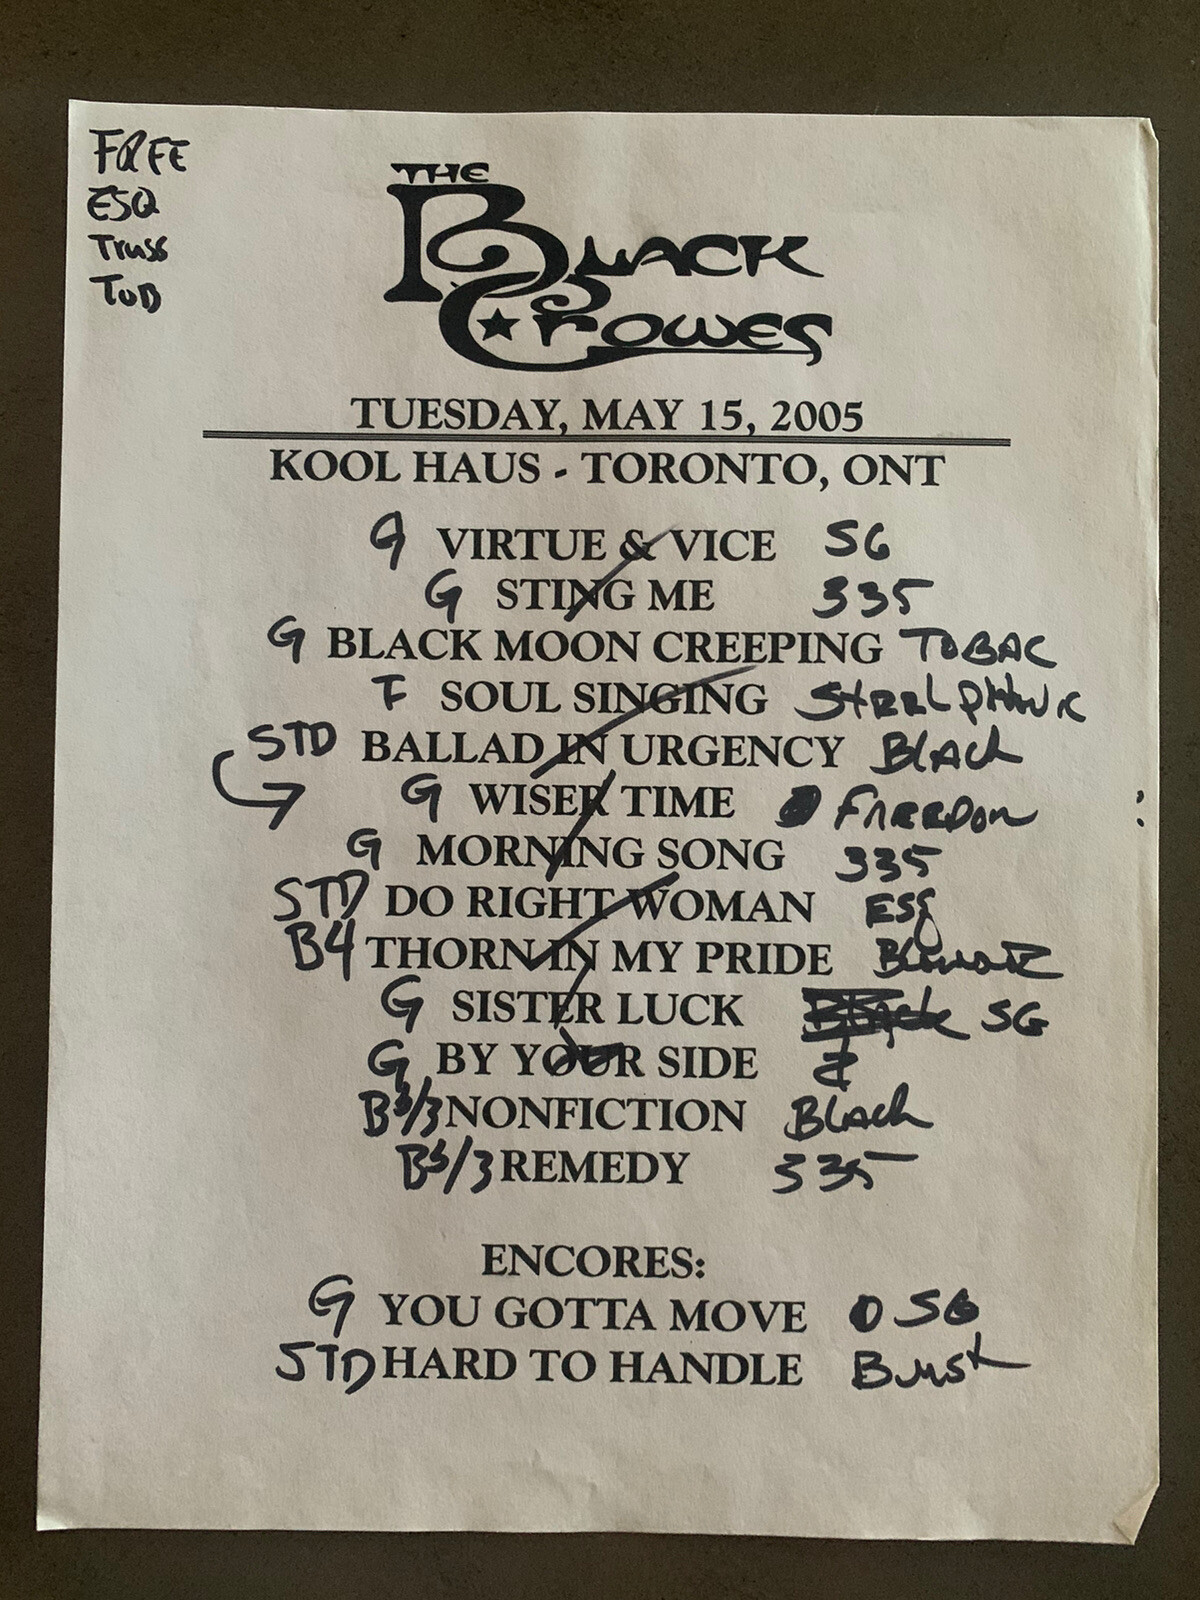 FREE
ESQ
Truss
TUD
THE
BLACK
CROWES
TUESDAY, MAY 15, 2005
KOOL HAUS - TORONTO, ONT
G VIRTUE & VICE SG
G STING ME 335
G BLACK MOON CREEPING TOBAC
F SOUL SINGING
STD BALLAD IN URGENCY BLACK
G WISER TIME FREEDOM
G MORNING SONG 335
STD DO RIGHT WOMAN ESQ
B4 THORN IN MY PRIDE
G SISTER LUCK Black SG
G BY YOUR SIDE
NONFICTION BLACK
REMEDY 335
ENCORES:
G YOU GOTTA MOVE SG
STD HARD TO HANDLE